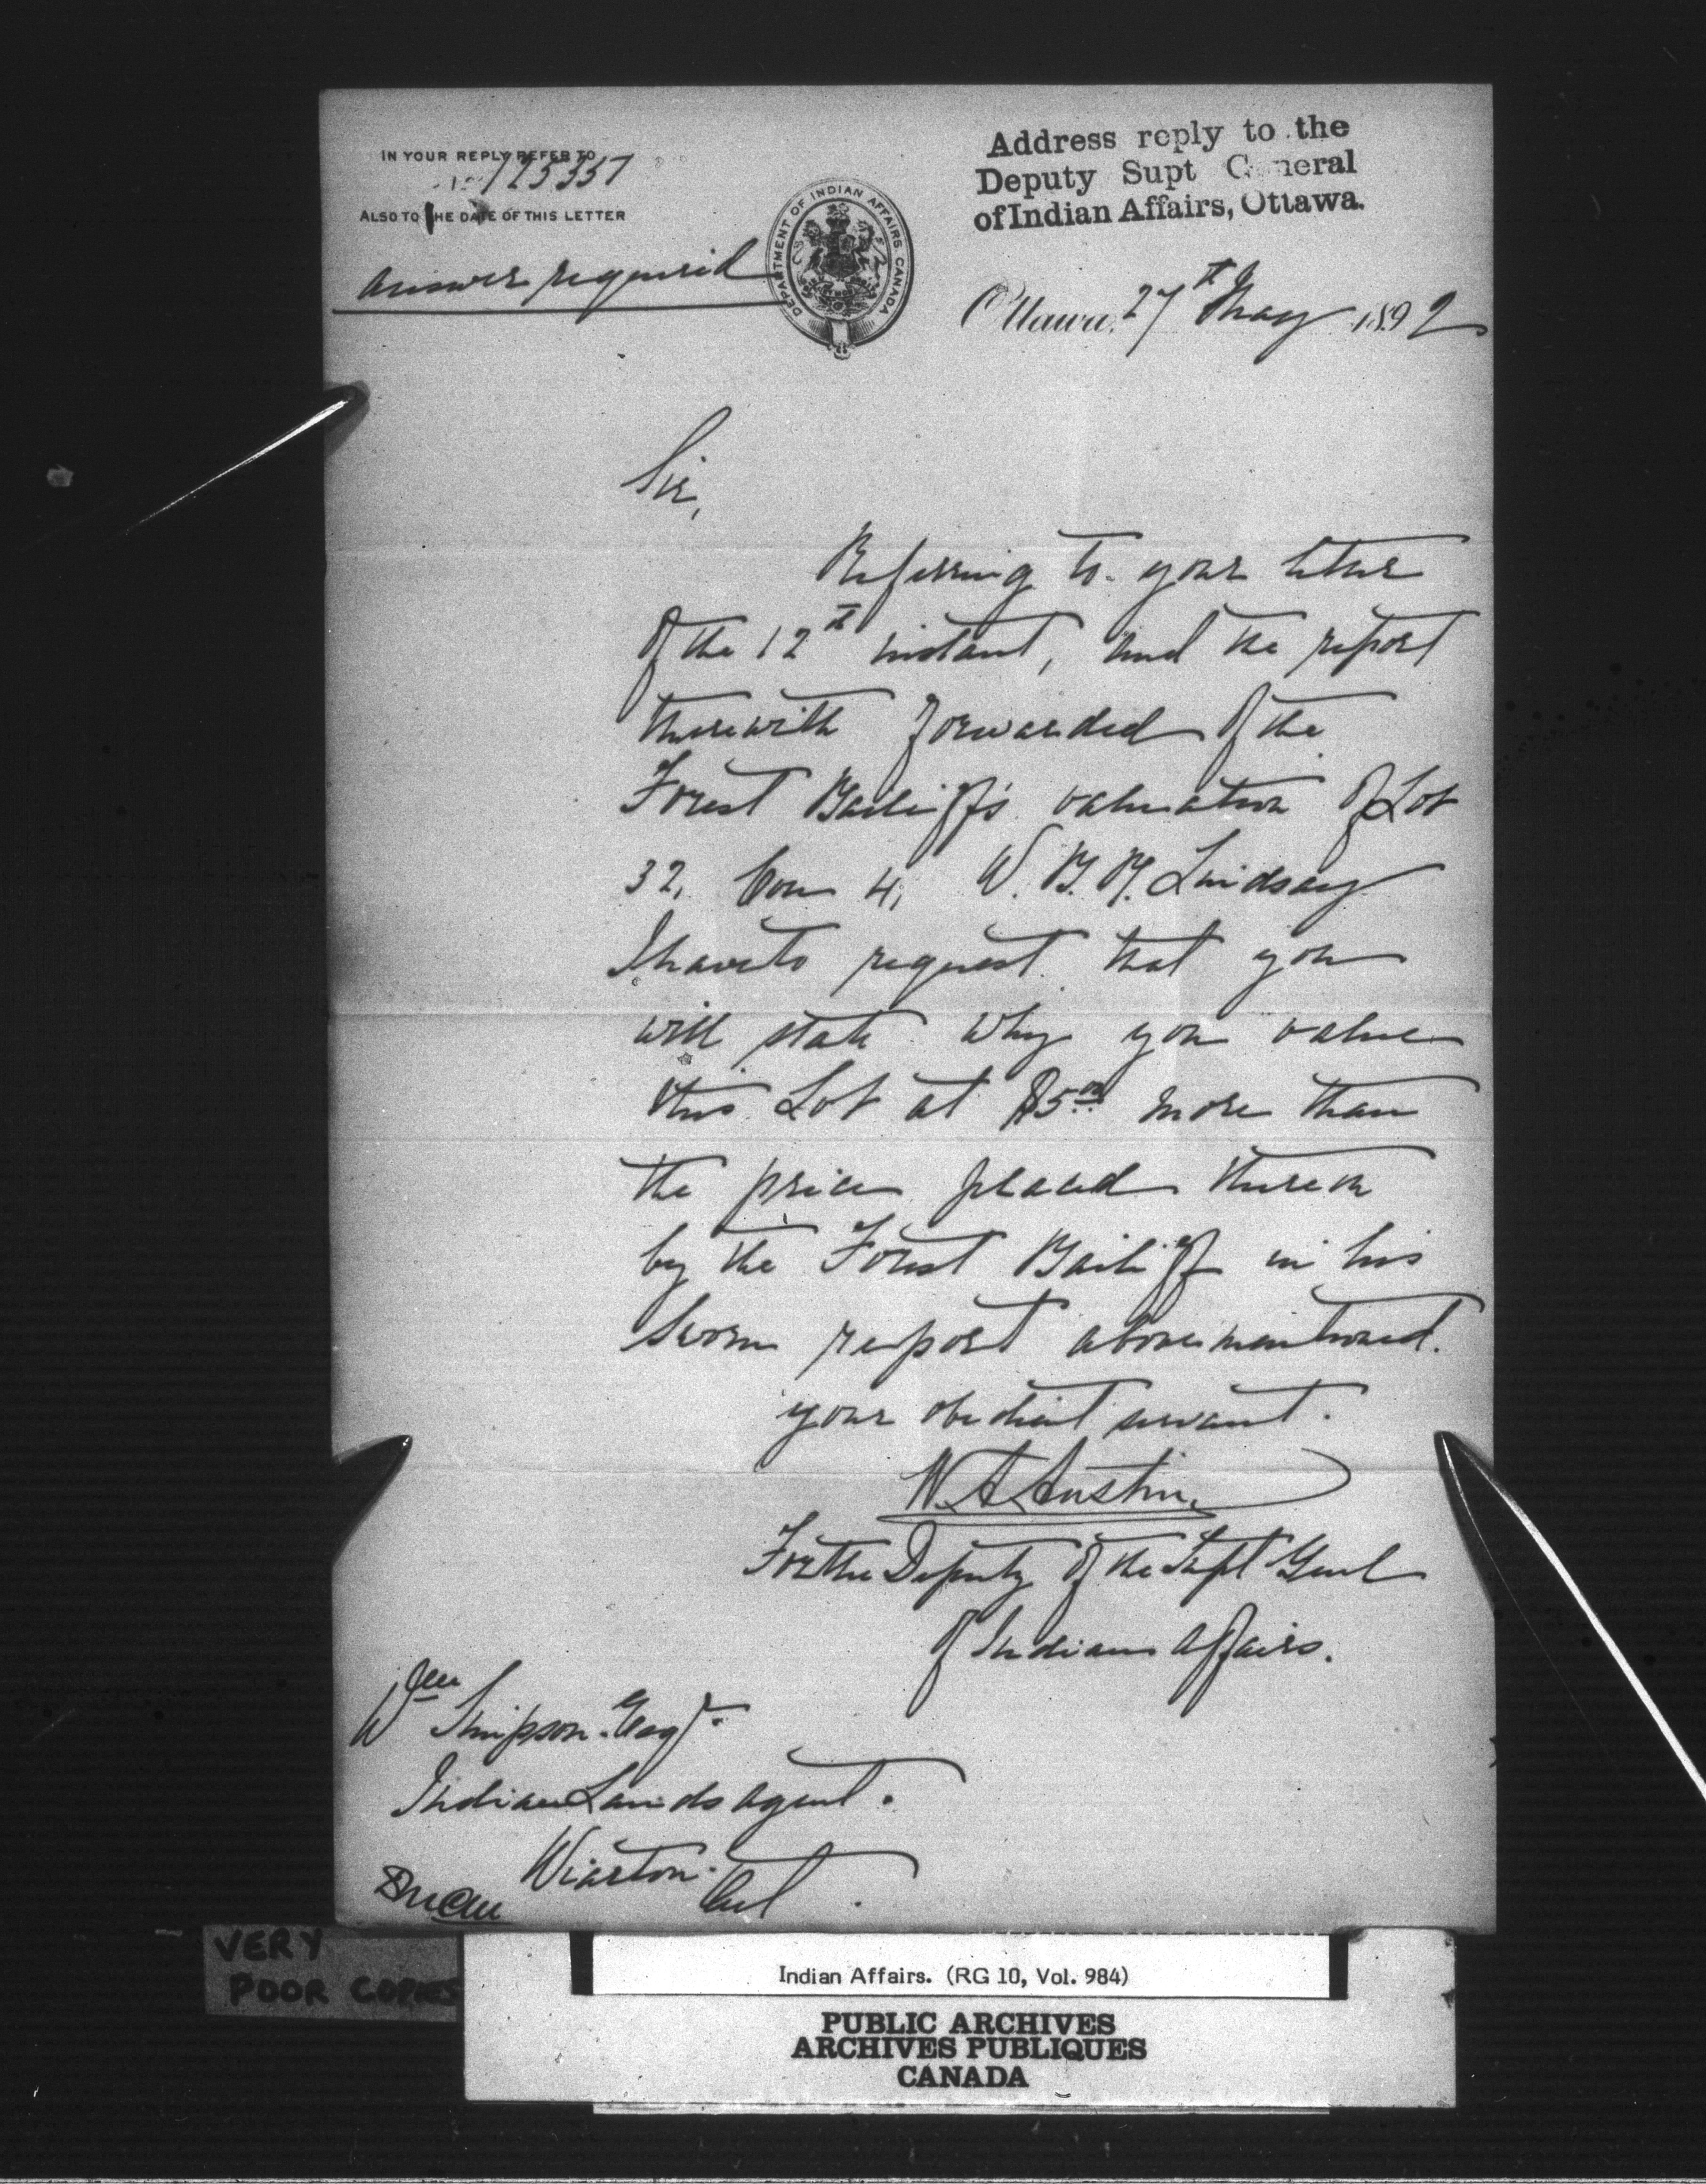 IN YOUR REPLY REFER TO
No 125337
ALSO TO THE DATE OF THIS LETTER
Answer required
DEPARTMENT OF INDIAN AFFAIRS. CANADA
Address reply to the
Deputy Supt General
of Indian Affairs, Ottawa.
Ottawa, 27th May 1892
Sir,
Referring to your letter
of the 12th instant, and the report
therewith forwarded of the
Forest Bailiff's valuation of Lot
32, Con 4, W. B. R. Lindsay
I have to request that you
will state why you value
this Lot at $5.00 more than
the price placed thereon
by the Forest Bailiff in his
sworn report abovementioned.
your obedient servant.
W. A. Austin
For the Deputy of the Supt Genl
of Indian Affairs.
Wm Simpson. Esqr.
Indian Lands Agent.
Wiarton.
Ont.
VERY
POOR COPIES
Indian Affairs. (RG 10, Vol. 984)
PUBLIC ARCHIVES
ARCHIVES PUBLIQUES
CANADA